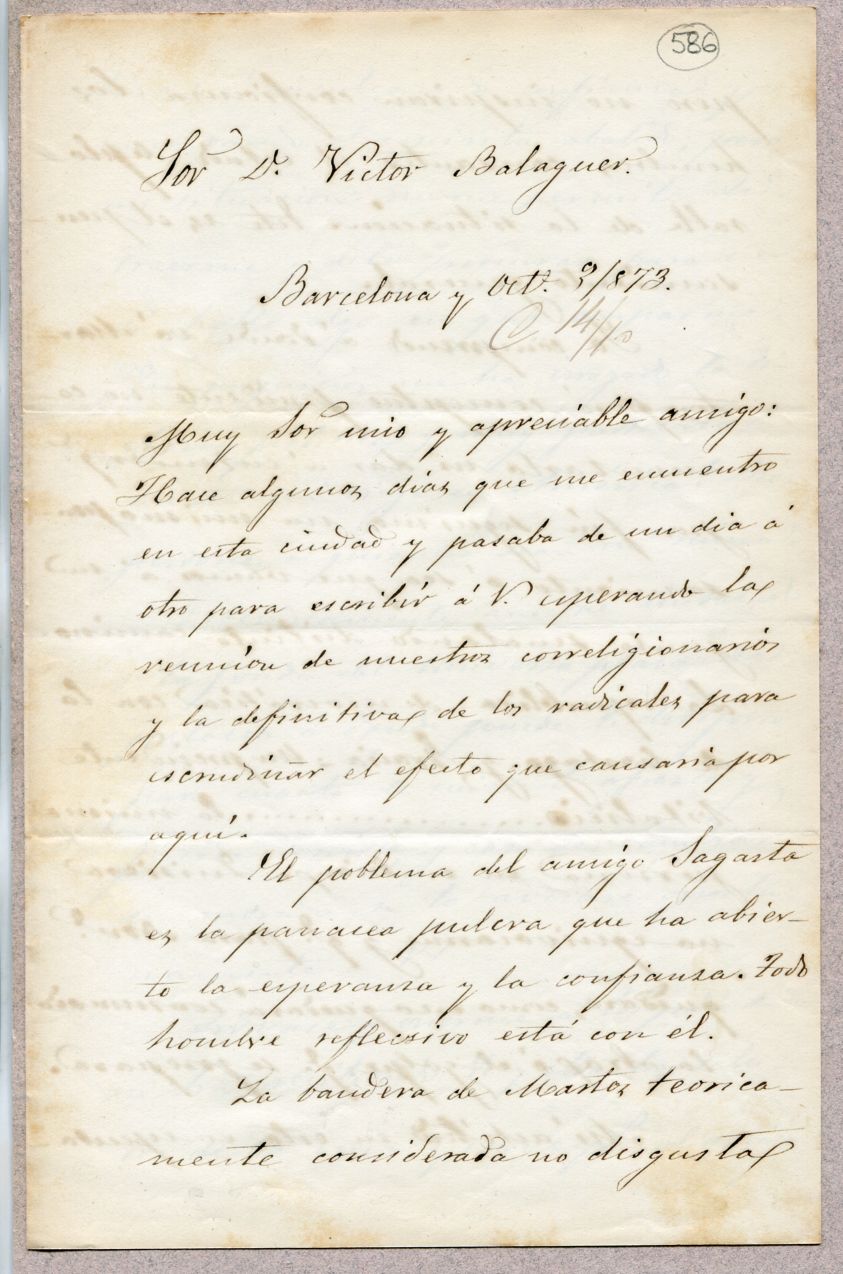 586
Sor D. Victor Balaguer.
Barcelona y Oct. 9/873.
C 14/10
Muy Sor mio y apreciable amigo:
Hace algunos dias que me encuentro
en esta ciudad y pasaba de un dia á
otro para escribir á V. esperando la
reunion de nuestros correligionarios
y la definitiva de los radicales para
escrudiñar el efecto que causaria por
aqui.
El poblema del amigo Sagasta
es la panacea pulcra que ha abier-
to la esperansa y la confiansa. Todo
hombre reflecsivo está con él.
La bandera de Martos teorica-
mente considerada no disgusta